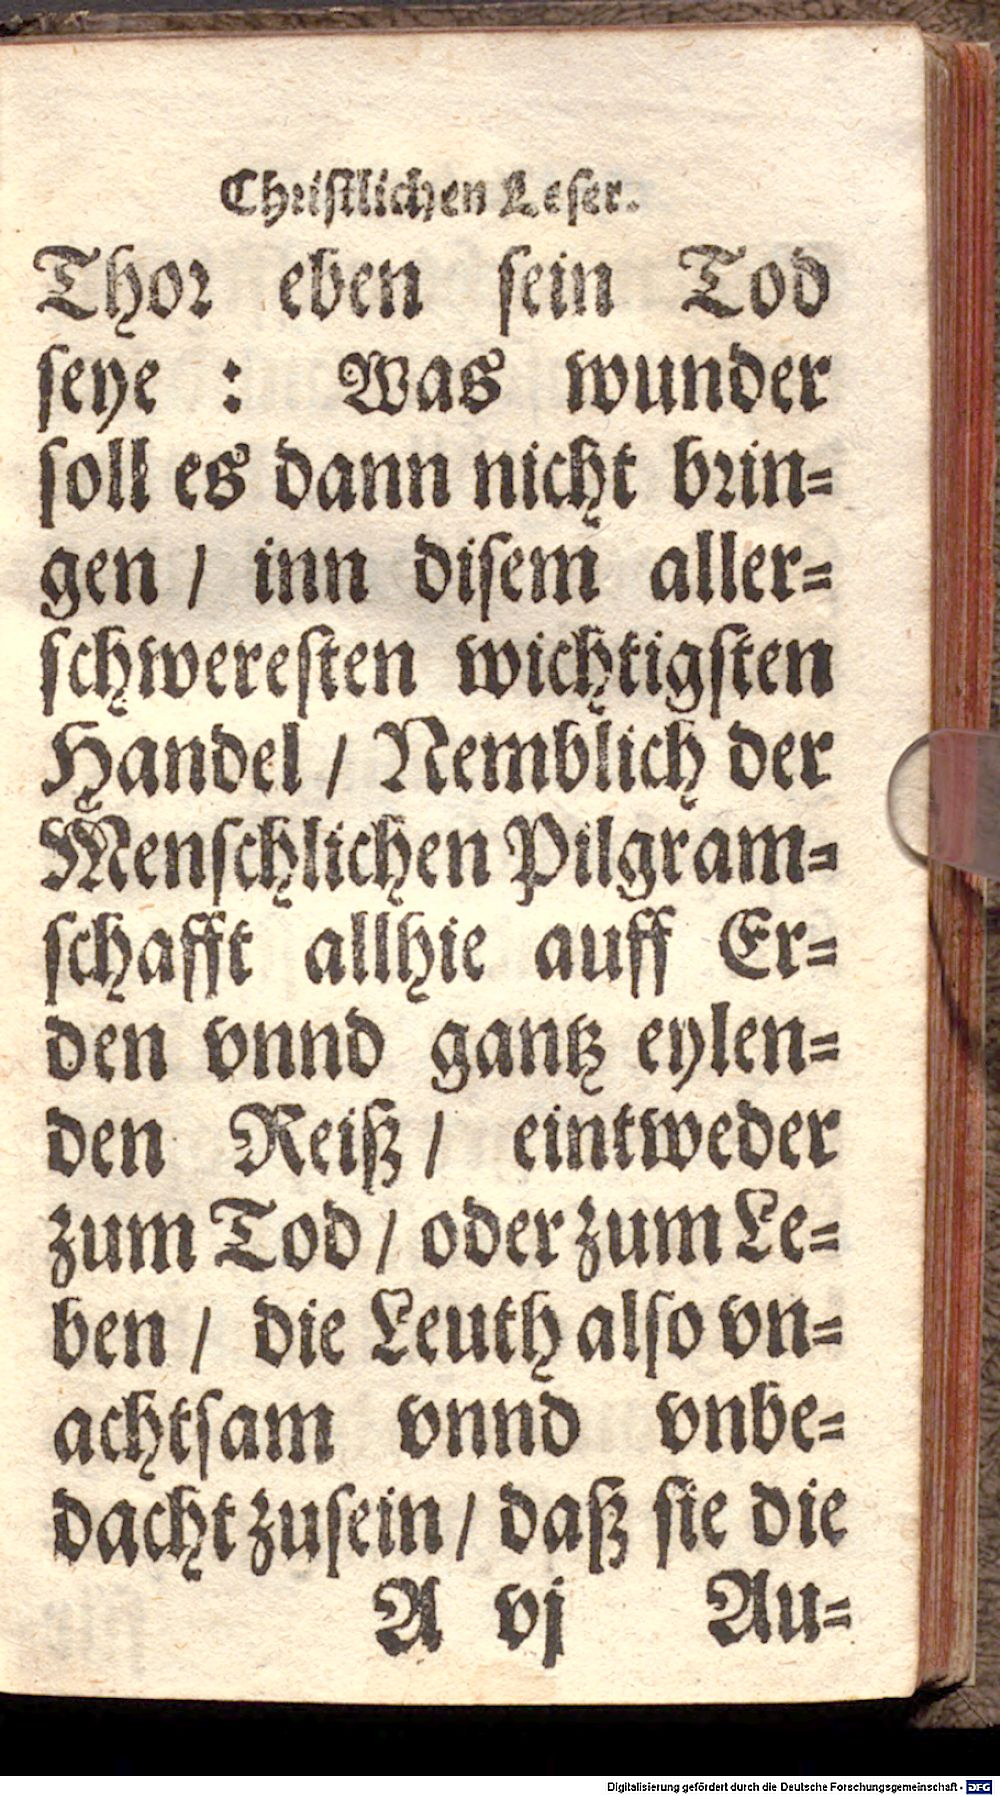 Christlichen Leser.
Thor eben sein Tod
seye : Was wunder
soll es dann nicht brin-
gen / inn disem aller-
schweresten wichtigsten
Handel / Nemblich der
Menschlichen Pilgram-
schafft allhie auff Er-
den vnnd gantz eylen-
den Reiß / eintweder
zum Tod / oder zum Le-
ben / die Leuth also vn-
achtsam vnnd vnbe-
dacht zusein / daß sie die
A vj Au-
Digitalisierung gefördert durch die Deutsche Forschungsgemeinschaft - DFG